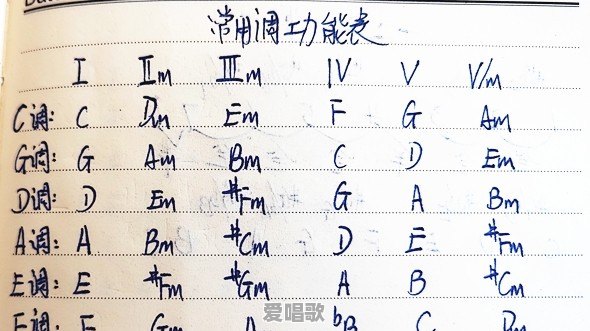 常用调功能表
I IIm IIIm IV V VIm
C调: C Dm Em F G Am
G调: G Am Bm C D Em
D调: D Em #Fm G A Bm
A调: A Bm #Cm D E #Fm
E调: E #Fm #Gm A B #Cm
爱唱歌
F调: F Gm A bB C Dm